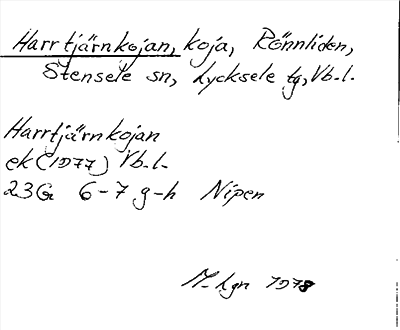 Harrtjärnkojan, koja, Rönnliden,
Stensele sn, Lycksele tg, Vb-l.
Harrtjärnkojan
ek (1977) Vb-l-
23G 6-7 g-h Nipen
M-Lgn 1978